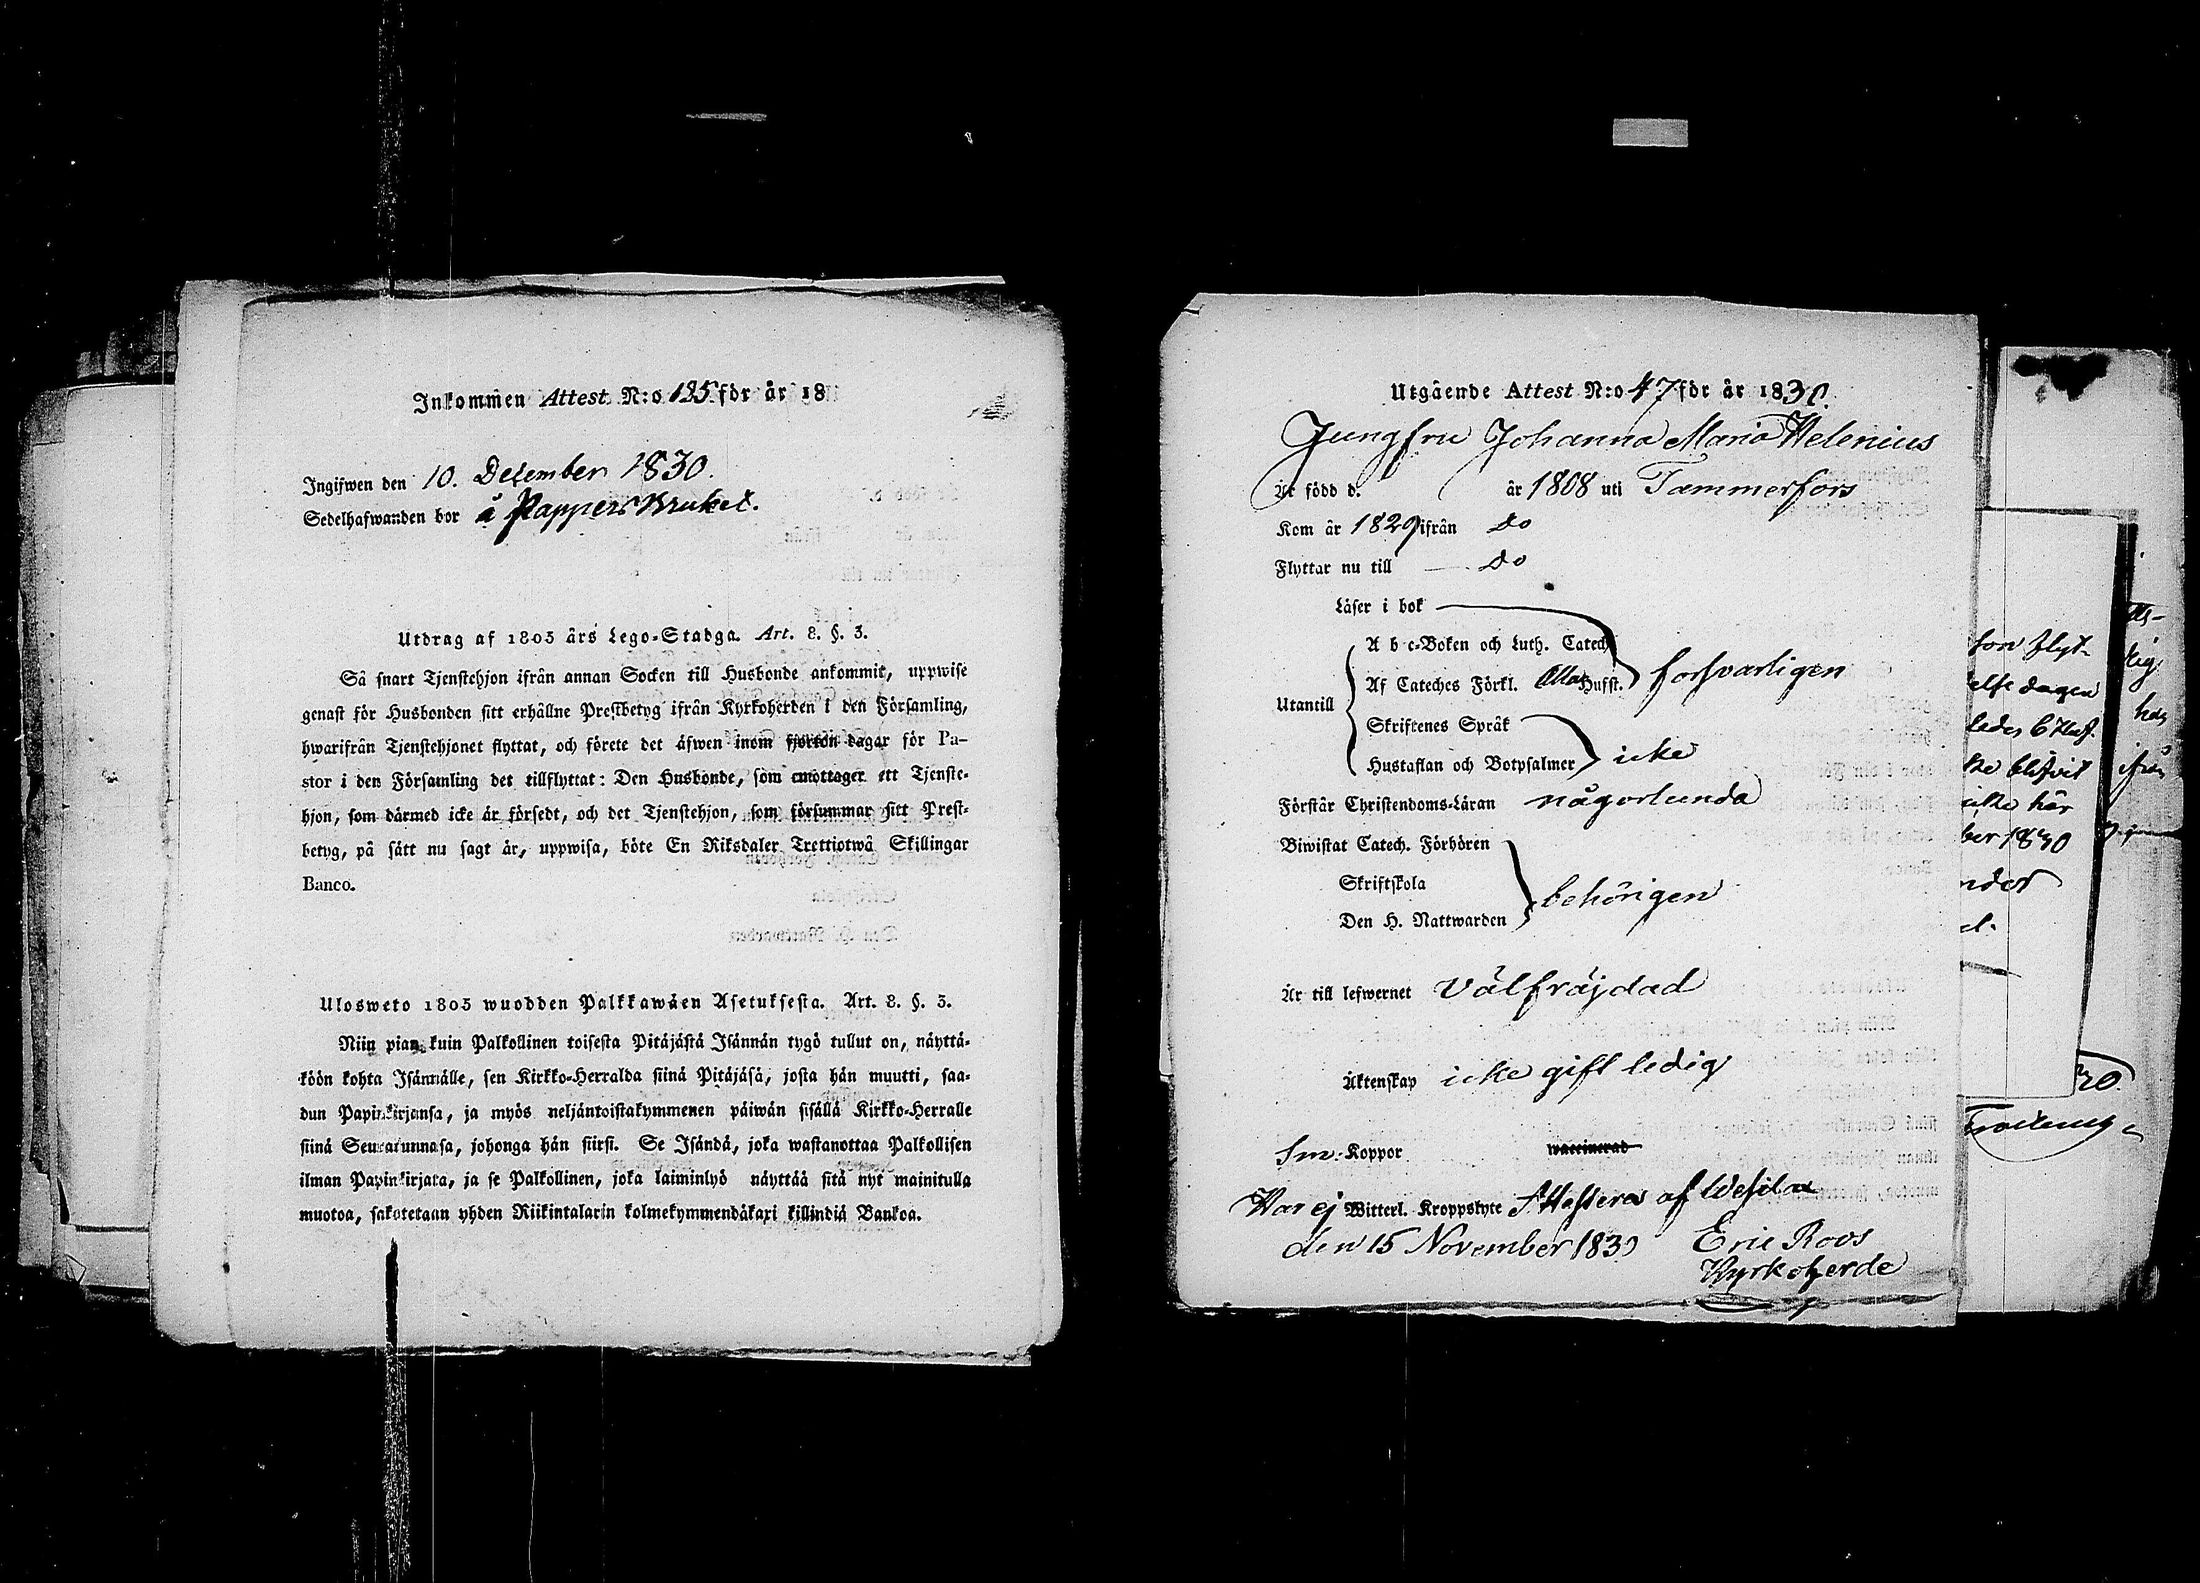 Inkommen Attest N:o 125 för år 18
Ingifwen den 10. December 1830.
Sedelhafwanden bor å Pappers Bruket.
Utdrag af 1805 års Lego-Stadga. Art. 8. §. 3.
Så snart Tjenstehjon ifrån annan Socken till Husbonde ankommit, uppwise
genast för Husbonden sitt erhållne Prestbetyg ifrån Kyrkoherden i den Församling,
hwarifrån Tjenstehjonet flyttat, och förete det äfwen inom fjorton dagar för Pa-
stor i den Församling det tillflyttat: Den Husbonde, som emottager ett Tjenste-
hjon, som därmed icke är försedt, och det Tjenstehjon, som försummar sitt Prest-
betyg, på sätt nu sagt är, uppwisa, böte En Riksdaler Trettiotwå Skillingar
Banco.
Ulosweto 1805 wuodden Palkkawäen Asetuksesta. Art. 8. §. 3.
Niin pian kuin Palkollinen toisesta Pitäjästä Isännän tygö tullut on, näyttä-
köön kohta Isännälle, sen Kirkko-Herralda siinä Pitäjäsä, josta hän muutti, saa-
dun Papinkirjansa, ja myös neljäntoistakymmenen päiwän sisällä Kirkko-Herralle
siinä Seurakunnasa, johonga hän siirsi. Se Isändä, joka wastanottaa Palkollisen
ilman Papinkirjata, ja se Palkollinen, joka laiminlyö näyttää sitä nyt mainitulla
muotoa, sakotetaan yhden Riikintalarin kolmekymmendäkaxi killindiä Bankoa.
Utgående Attest N:o 47 för år 1830.
Jungfru Johanna Maria Helenius
Är född d. år 1808 uti Tammerfors
Kom år 1829 ifrån Do
Flyttar nu till Do
Läser i bok
A b c-Boken och Luth. Catech.
Af Cateches Förkl. Hufst. försvarligen
Utantill
Skriftenes Språk
Hustaflan och Botpsalmer icke
Förstår Christendoms-Läran någorlunda
Biwistat Catech. Förhören
Skriftskola
behörigen
Den H. Nattwarden
Är till lefwernet välfräjdad
Äktenskap icke gift ledig
Sm. Koppor vaccinerad
Har ej Witterl. Kroppslyte af Wesilax
den 15 November 1830 Eric Roos
Kyrkoherde
son flyt-
dagen
blifvit
icke här
ber 1830